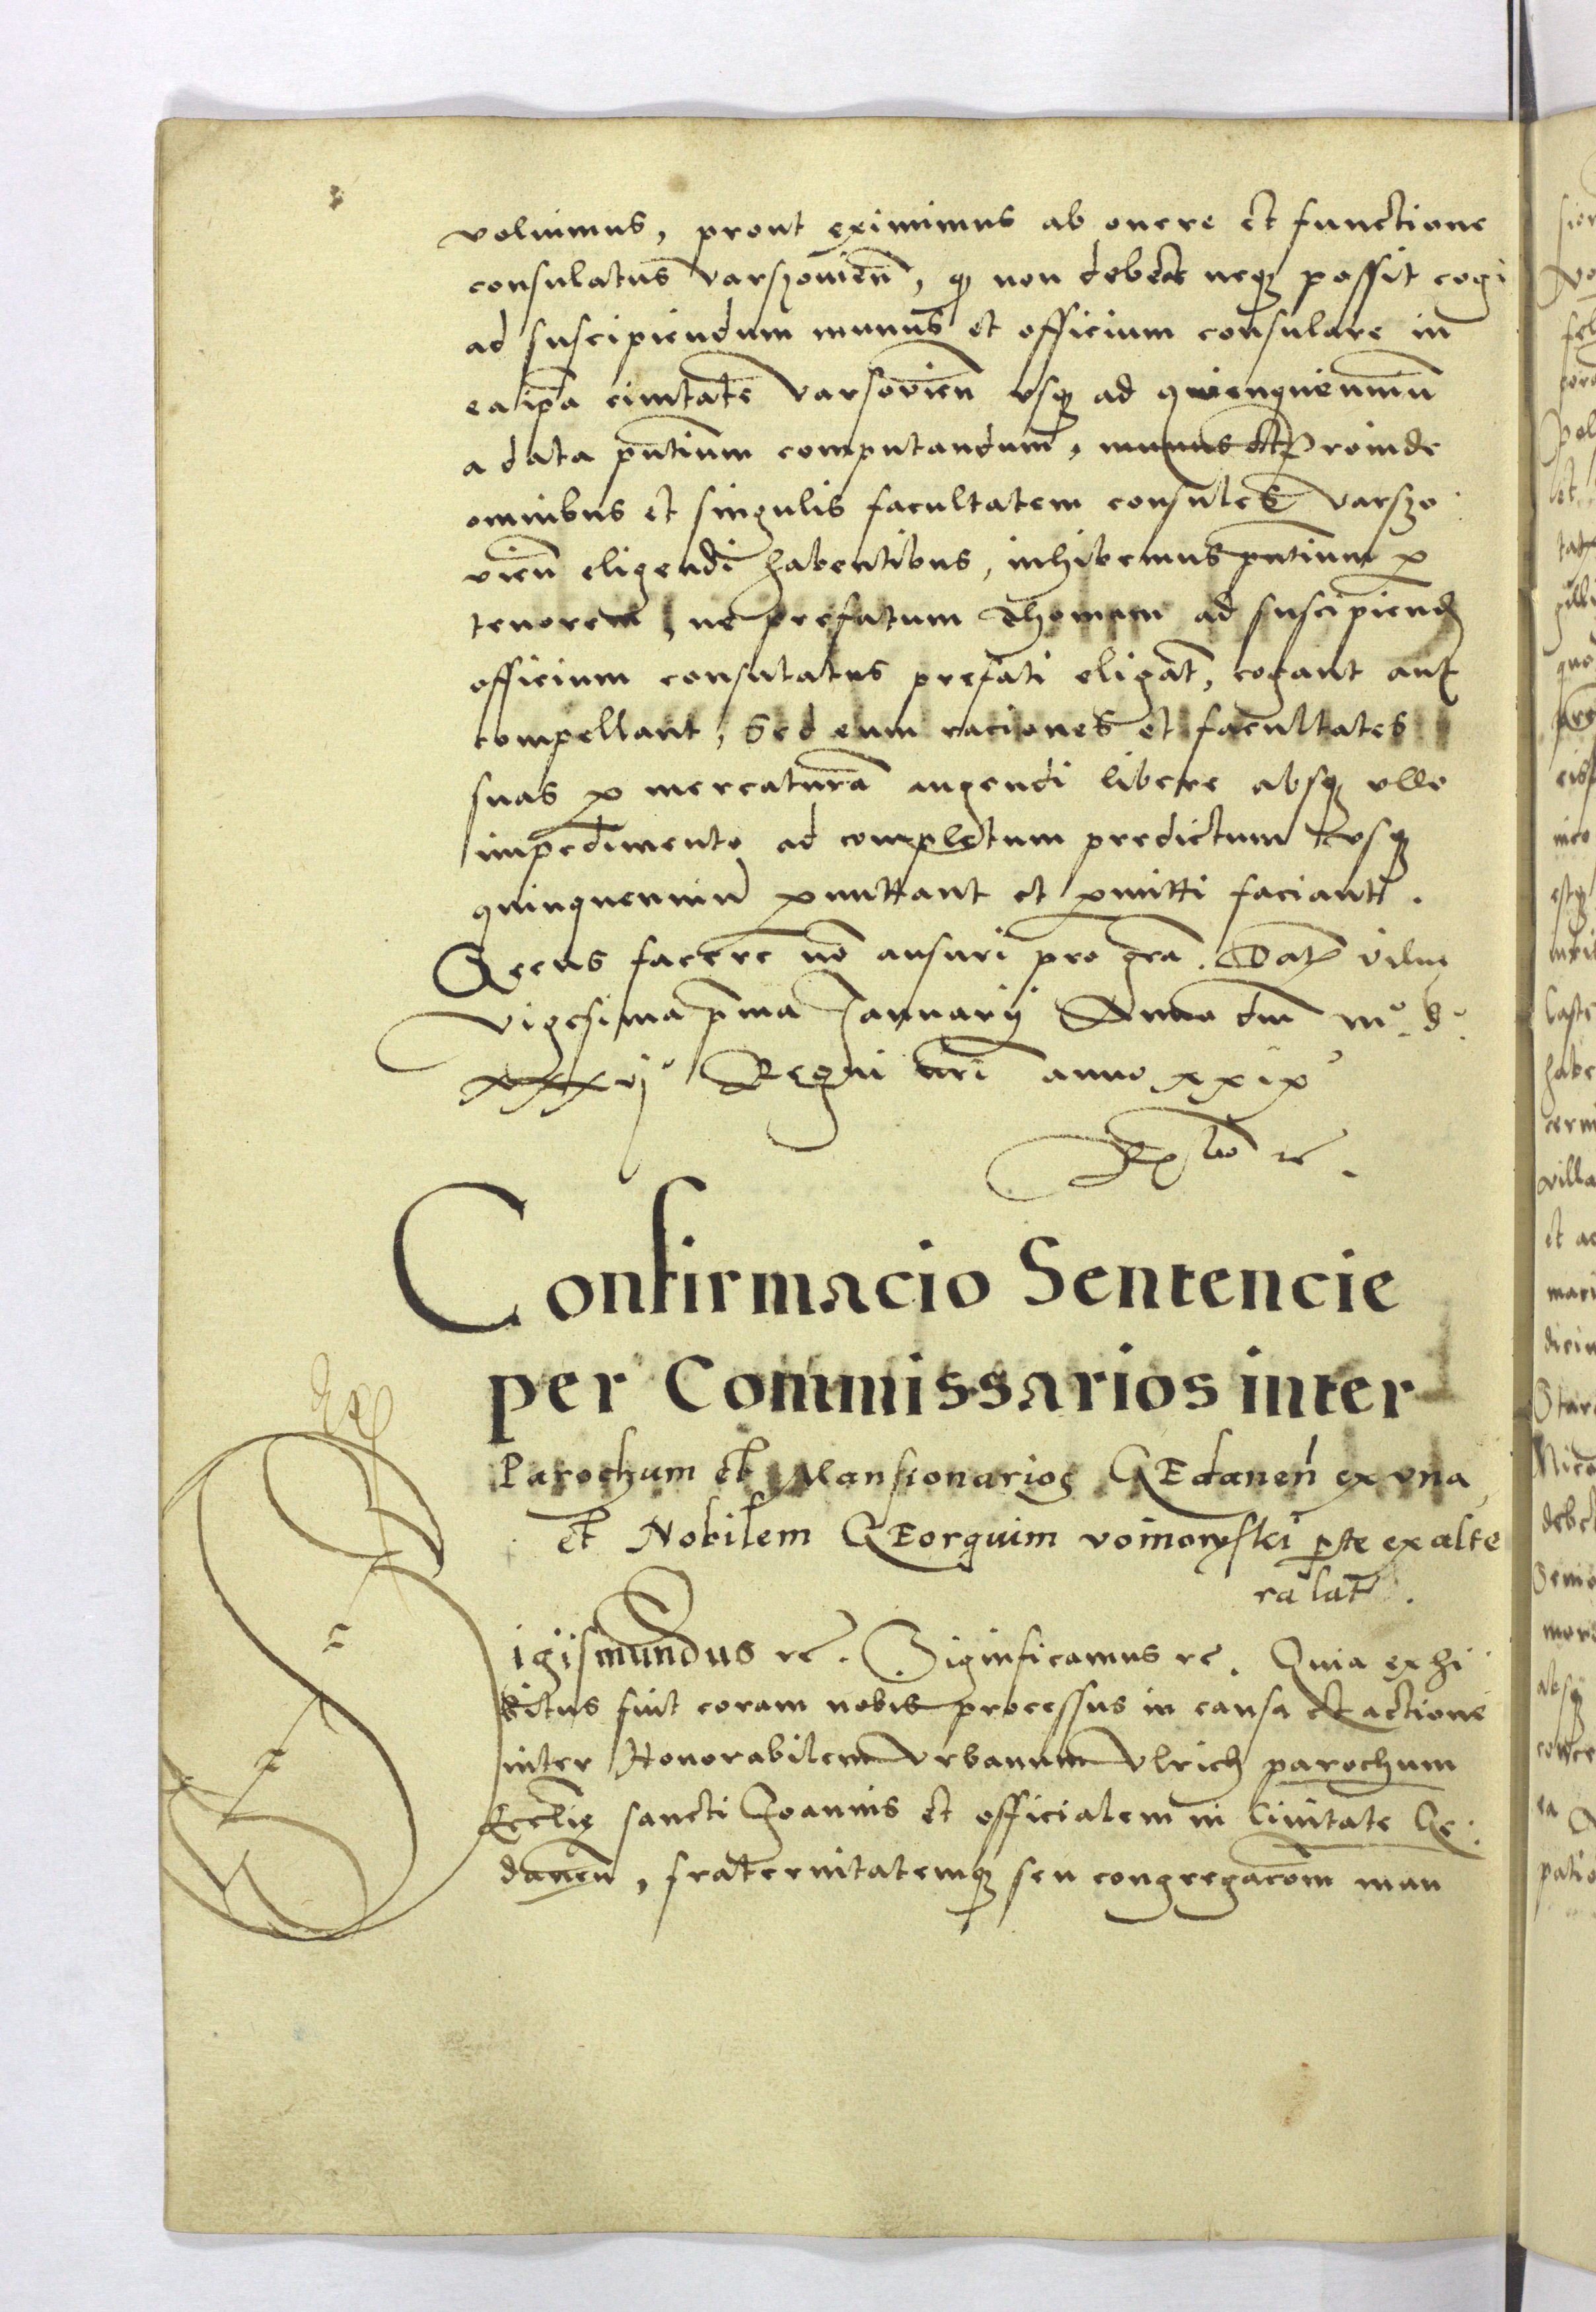 voluimus, prout eximimus ab onere et functione
consulatus varszovien̄, q̷ non debeat neq̷ possit cogi
ad suscipiendum munus et officium consulare in
ea ip̄a ciuitate varsovien̄ vsq̷ ad quinquenniū
a data pn̄tium computandum, munus et Proinde
omnibus et singulis facultatem consules varszo
vien̄ eligendi habentibus, inhibemus pn̄tium ꝑ
tenorem, ne prefatum Thomam ad suscipiend̄
officium consulatus prefati eligāt, cogant aut
compellant, Sed eum raciones et facultates
suas ꝑ mercaturā augendi libere absq̷ ullo
impedimento ad completum predictum vsq̷
quinquenniū ꝑmittant et ꝑmitti faciant.
Secus facere nō ausuri pro grā. Datꝫ vilne
vigesima p̄ma Januarij Anno dn̄i mº. dº.
xxxvjº Regni nr̄i anno xxixº
Confirmacio Sentencie
per Commissarios inter
Parochum et Mansionarios GEdanen̄ ex vna,
et Nobilem GEorgium voinowski pt̄e ex alte
ra lat̄.
Sigismundus rc̄. Significamus rc̄. Quia exhi
bitus fuit coram nobis processus in causa et actione
inter Honorabilem vrbanum vlrich parochum
Eccl̄ie sancti Joannis et officialem in Ciuitate Ge
danen̄, fraternitatemq̷ seu congregacōm man